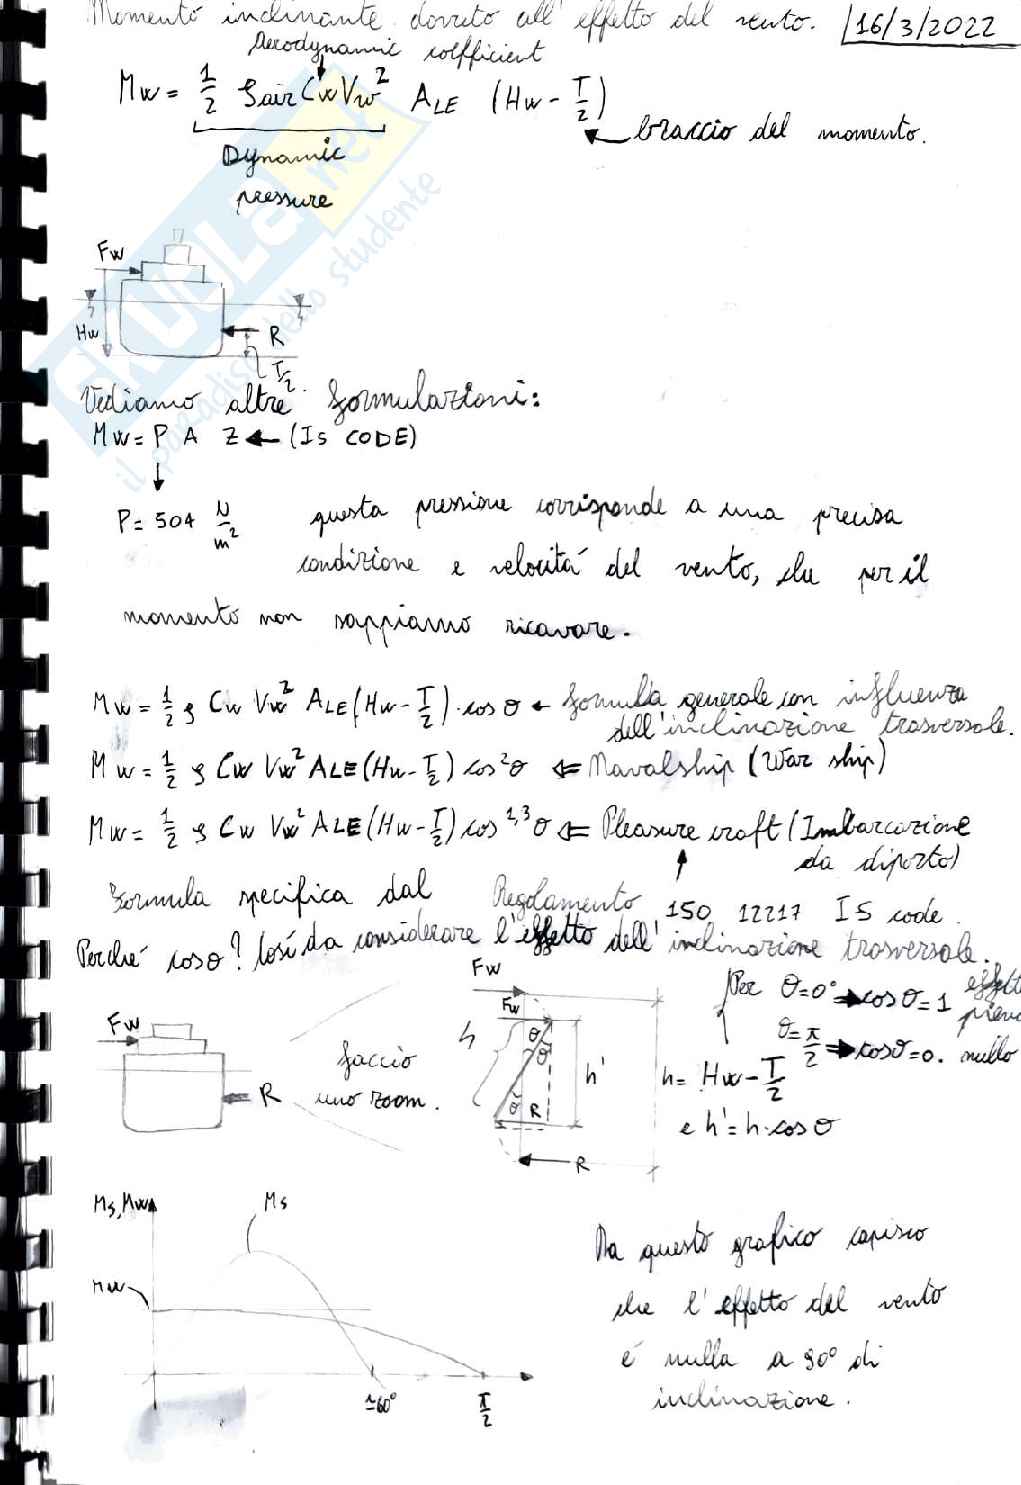 Momento inclinante dovuto all'effetto del vento. 16/3/2022
Aerodynamic coefficient
Mw = 1/2 ρair Cw Vw² A_LE (Hw - T/2)
braccio del momento.
Dynamic
pressure
Fw
Hw
R
T/2
Vediamo altre formulazioni:
Mw = P A Z ← (IS CODE)
P = 504 N/m² questa pressione corrisponde a una precisa
condizione e velocitá del vento, che per il
momento non sappiamo ricavare.
Mw = 1/2 ρ Cw Vw² A_LE (Hw - T/2) · cos θ ← formula generale con influenza
dell'inclinazione trasversale.
Mw = 1/2 ρ Cw Vw² A_LE (Hw - T/2) cos²θ ⇐ Navalship (War ship)
Mw = 1/2 ρ Cw Vw² A_LE (Hw - T/2) cos^1,3 θ ⇐ Pleasure craft (Imbarcazione
da diporto)
Formula specifica dal Regolamento ISO 12217 IS code.
Perché cosθ? Cosí da considerare l'effetto dell'inclinazione trasversale.
Fw
R
faccio
uno zoom.
Fw
Fw
h
θ
θ
θ
R
h'
R
Per θ=0° → cos θ = 1 effetto
θ = π/2 → cosθ = 0. nullo
h = Hw - T/2
e h' = h·cos θ
Ms, Mw
Ms
Mw
≃60°
π/2
Da questo grafico capisco
che l'effetto del vento
é nulla a 90° di
inclinazione.
SKUOLA.net
il paradiso dello studente